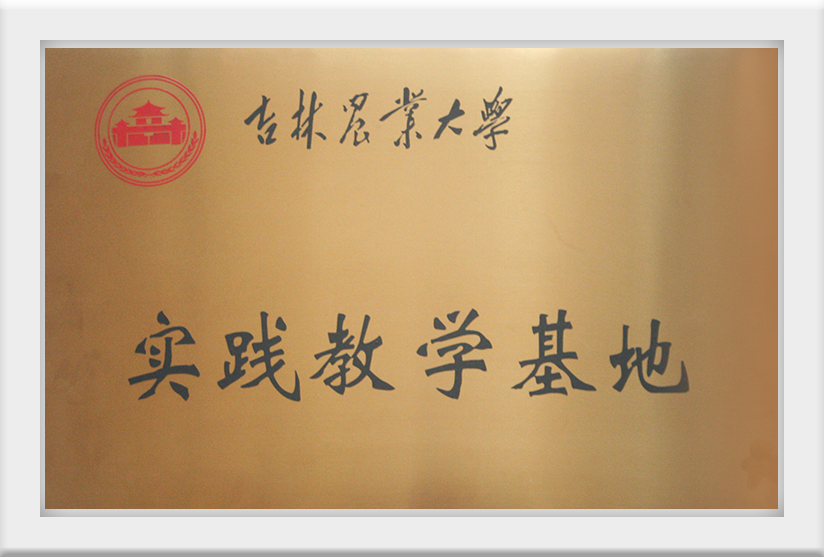 吉林農業大學
实践教学基地